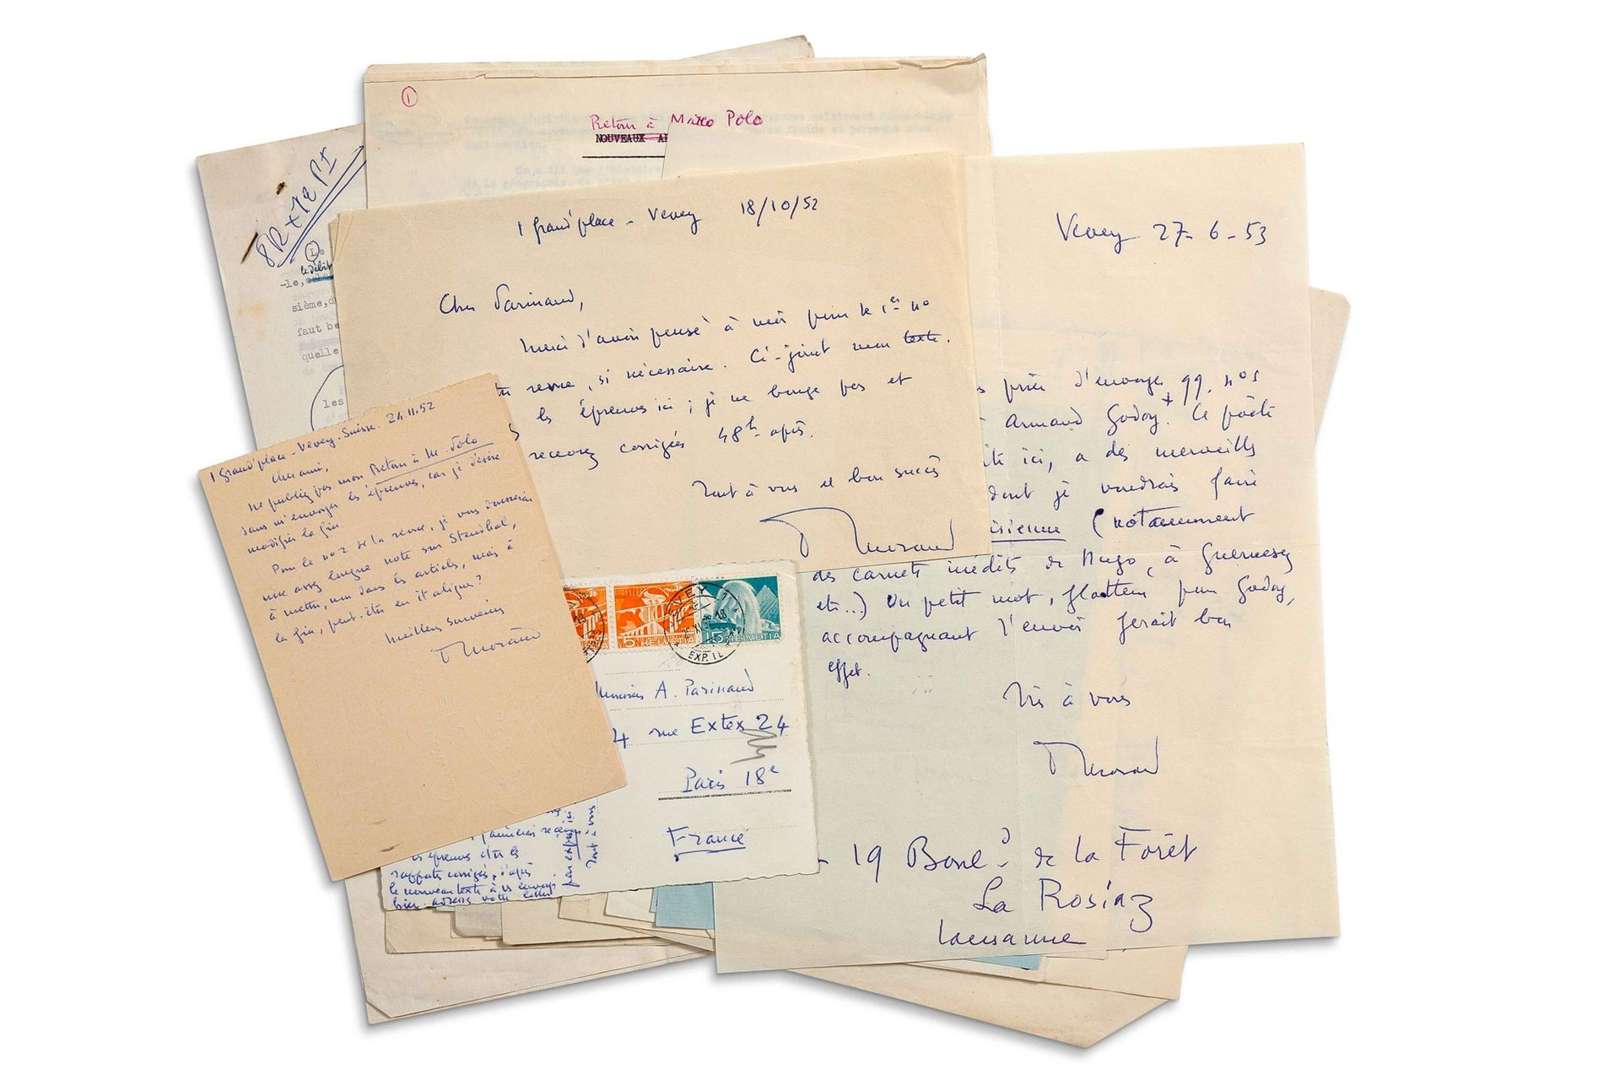 1
Retour à Marco Polo
NOUVEAUX
8R + 12 PI
le débit
-le,
sième, d
faut be
quelle
les
1 Grand'place - Vevey 18/10/52
Cher Parinaud,
Merci d'avoir pensé à moi pour le 1er no
revue, si nécessaire. Ci-joint mon texte.
les épreuves ici ; je ne bouge pas et
recevrez corrigées 48h après.
Tout à vous et bon succès
P Morand
Vevey 27-6-53
prier d'envoyer 99. nos
Armand Godoy + Ce poète
ici, a des merveilles
dont je voudrais faire
isienne (notamment
des carnets inédits de Hugo, à Guernesey
etc..) Un petit mot, flatteur pour Godoy,
accompagnant l'envoi ferait bon
effet.
Très à vous
P Morand
- 19 Boul.d de la Forêt
La Rosiaz
Lausanne
1 Grand'place - Vevey. Suisse. 24.11.52
Cher ami,
Ne publiez pas mon Retour à M. Polo
sans m'envoyer les épreuves, car je désire
modifier la fin
Pour le no 2 de la revue, je vous donnerai
une assez longue note sur Stendhal,
à mettre, non dans les articles, mais à
la fin, peut-être en italique?
Meilleurs souvenirs
P Morand
VEVEY 1
EXP. L.
5 HELVETIA
15 HELVETIA
Monsieur A. Parinaud
4 rue Extex 24
Paris 18e
France
recevoir
épreuves
corrigées, d'après
le nouveau texte
par exprès
Tout à vous